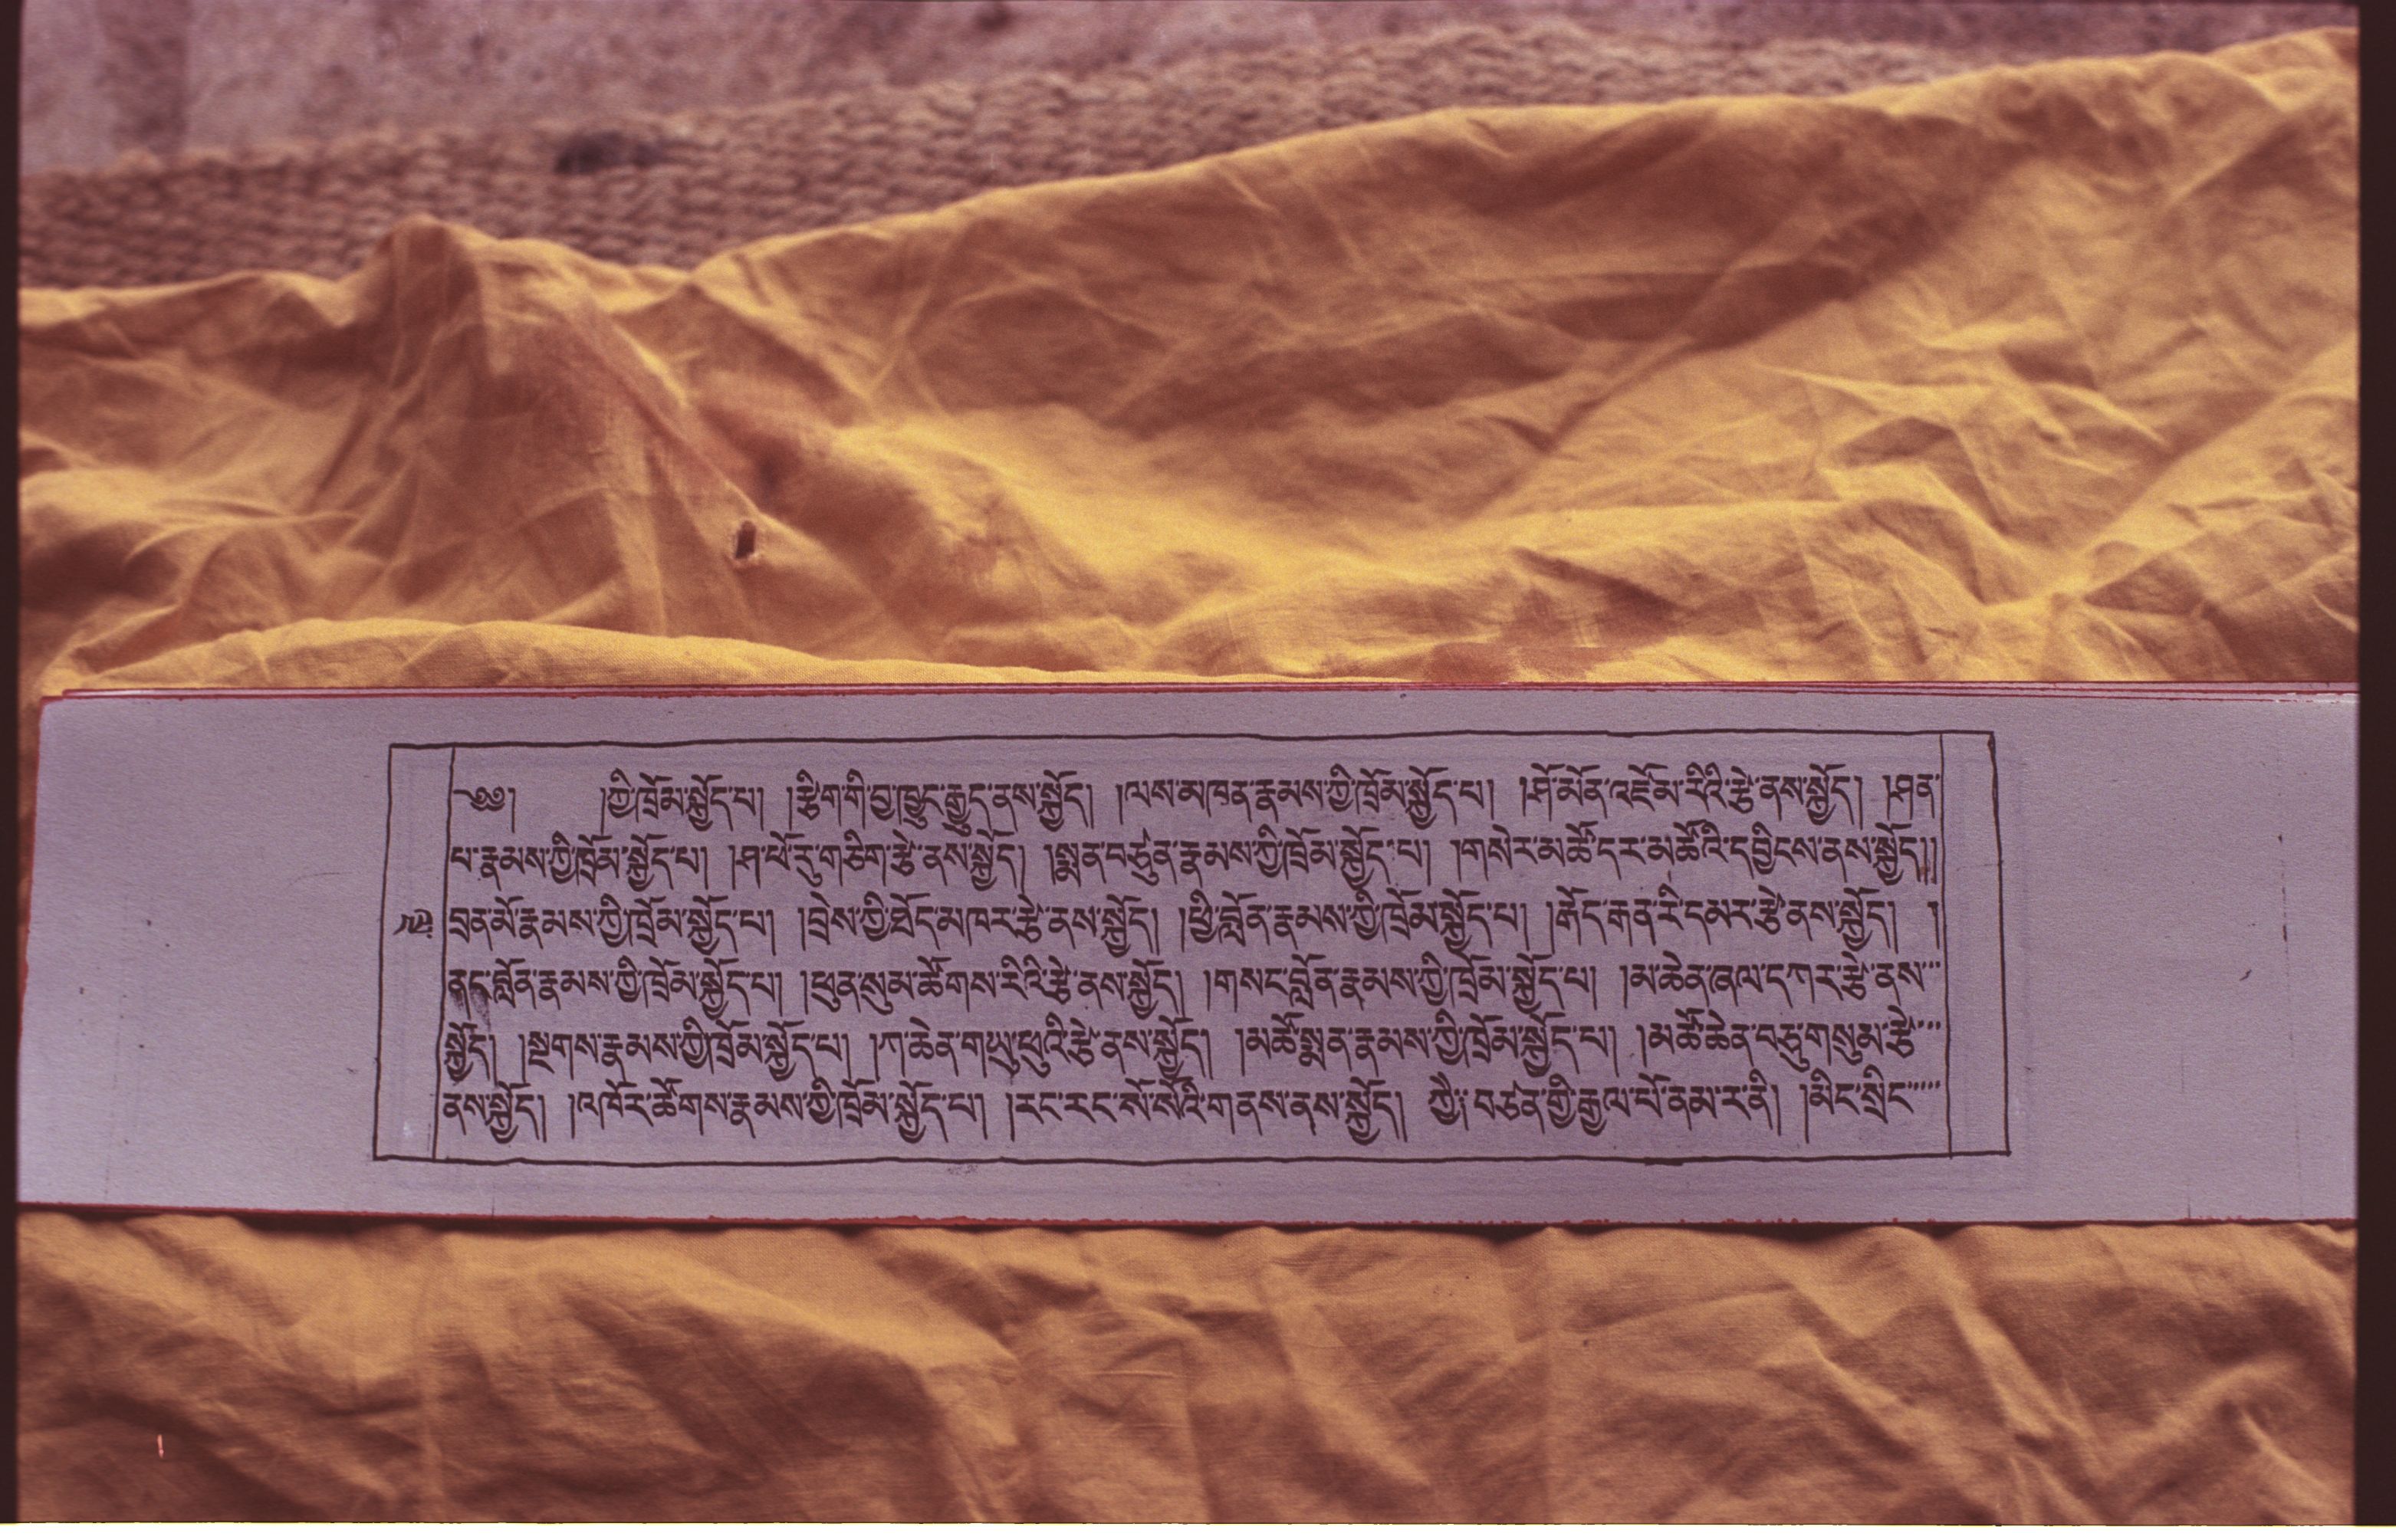 ༄༅། །ཀྱི་ཁྲོམ་སྐྱོད་པ། །རྩིག་གི་བྱ་ཁྱུང་རྒྱུད་ནས་སྐྱོད། །ལས་མཁན་རྣམས་ཀྱི་ཁྲོམ་སྐྱོད་པ། །ཤོ་མོན་འཛོམ་རིའི་རྩེ་ནས་སྐྱོད། །ཤན་
པ་རྣམས་ཀྱི་ཁྲོམ་སྐྱོད་པ། །ཤ་ཕོ་རུ་གཅིག་རྩེ་ནས་སྐྱོད། །སྨན་བཙུན་རྣམས་ཀྱི་ཁྲོམ་སྐྱོད་པ། །གསེར་མཚོ་དར་མཚོའི་དབྱིངས་ནས་སྐྱོད།།
བྲན་མོ་རྣམས་ཀྱི་ཁྲོམ་སྐྱོད་པ། །བྲེས་ཀྱི་ཐོད་མཁར་རྩེ་ནས་སྐྱོད། །ཕྱི་བློན་རྣམས་ཀྱི་ཁྲོམ་སྐྱོད་པ། །རྒོད་རྒན་རི་དམར་རྩེ་ནས་སྐྱོད། །
ནང་བློན་རྣམས་ཀྱི་ཁྲོམ་སྐྱོད་པ། །ཕུན་སུམ་ཚོགས་རིའི་རྩེ་ནས་སྐྱོད། །གསང་བློན་རྣམས་ཀྱི་ཁྲོམ་སྐྱོད་པ། །མ་ཆེན་ཞལ་དཀར་རྩེ་ནས
སྐྱོད། །སྔགས་རྣམས་ཀྱི་ཁྲོམ་སྐྱོད་པ། །ཀ་ཆེན་གཡུ་ཕུའི་རྩེ་ནས་སྐྱོད། །མཚོ་སྨན་རྣམས་ཀྱི་ཁྲོམ་སྐྱོད་པ། །མཚོ་ཆེན་བཅུ་གསུམ་རྩེ
ནས་སྐྱོད། །འཁོར་ཚོགས་རྣམས་ཀྱི་ཁྲོམ་སྐྱོད་པ། །རང་རང་སོ་སོའི་གནས་ནས་སྐྱོད། ཀྱཻ༔ བཙན་གྱི་རྒྱལ་པོ་ནམ་ར་ནི། །མིང་སྲིང